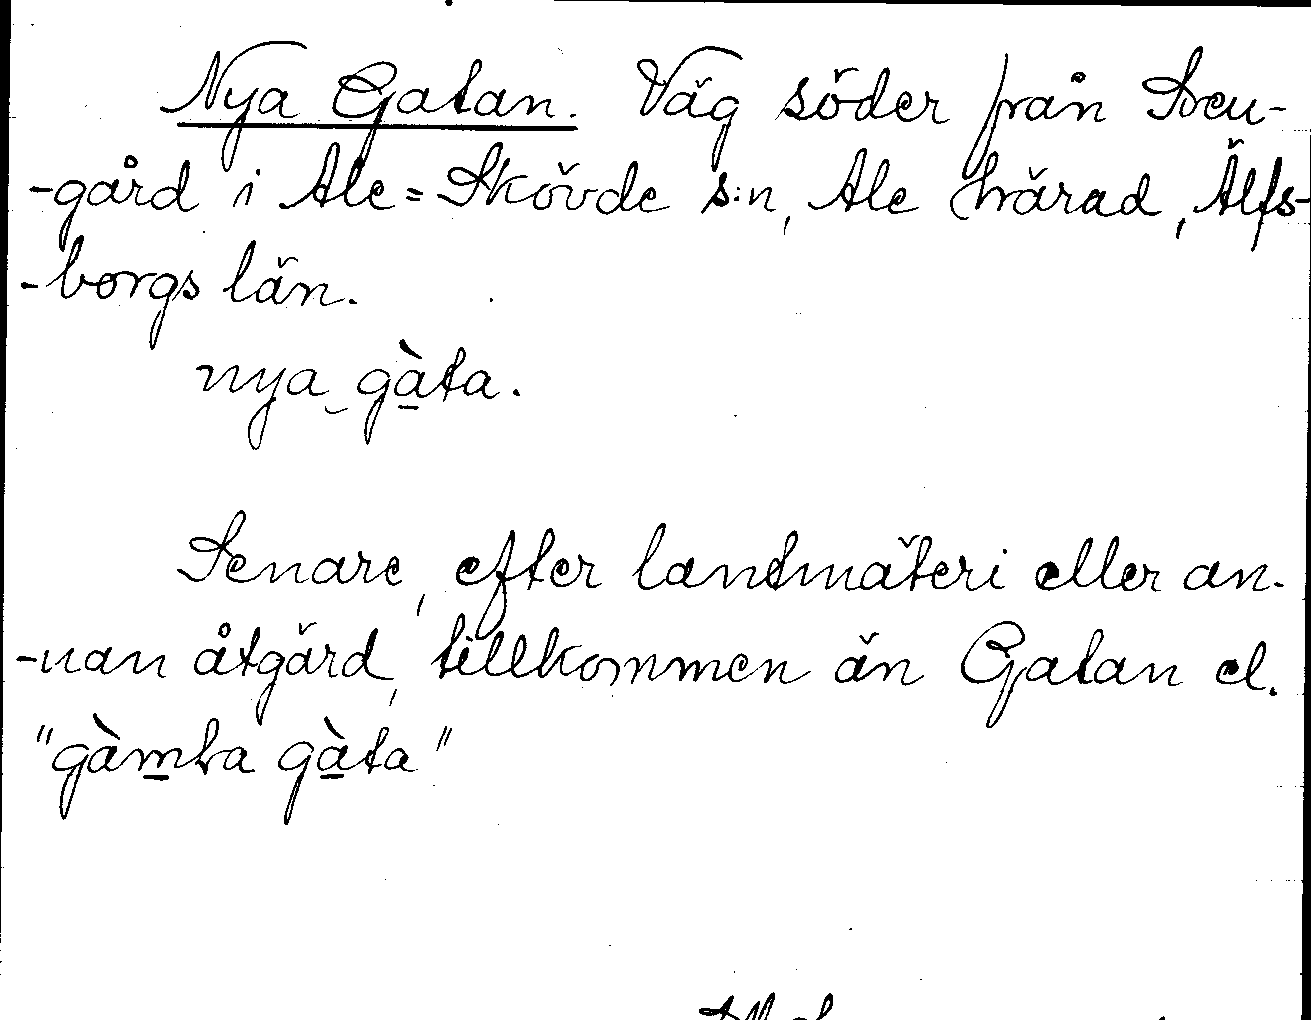 Nya Gatan. Väg söder från Sven-
-gård i Ale=Skövde s:n, Ale härad, Älfs-
-borgs län.
nya gàta.
Senare, efter landtmäteri eller an-
-nan åtgärd, tillkommen än Gatan el.
"gàmba gàta"